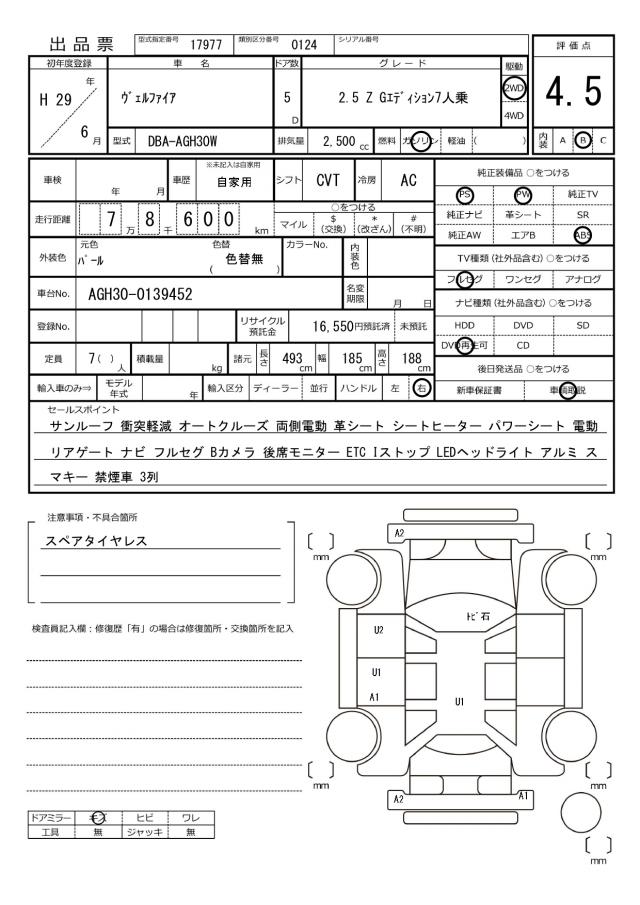 出品票 型式指定番号 17977 類別区分番号 0124 シリアル番号
評価点
初年度登録 車名 ドア数 グレード 駆動
H 29 年 6 月 ヴェルファイア 5 D 2.5 Z Gエディション7人乗 2WD 4WD
4.5
型式 DBA-AGH30W 排気量 2,500 cc 燃料 ガソリン 軽油 ( ) 内装 A B C
車検 年 月 車歴 ※未記入は自家用 自家用 シフト CVT 冷房 AC
純正装備品 ○をつける
PS PW 純正TV
走行距離 7 万 8 千 6 0 0 km ○をつける
マイル $ (交換) * (改ざん) # (不明)
純正ナビ 革シート SR
純正AW エアB ABS
外装色 元色 パール 色替 色替無 ( ) カラーNo. 内装色
TV種類 (社外品含む) ○をつける
フルセグ ワンセグ アナログ
車台No. AGH30-0139452 名変期限 月 日
ナビ種類 (社外品含む) ○をつける
登録No. リサイクル預託金 16,550円預託済 未預託
HDD DVD SD
DVD再生可 CD
定員 7( ) 人 積載量 kg 諸元 長さ 493 cm 幅 185 cm 高さ 188 cm
後日発送品 ○をつける
輸入車のみ⇒ モデル年式 年 輸入区分 ディーラー 並行 ハンドル 左 右
新車保証書 車輌取説
セールスポイント
サンルーフ 衝突軽減 オートクルーズ 両側電動 革シート シートヒーター パワーシート 電動
リアゲート ナビ フルセグ Bカメラ 後席モニター ETC Iストップ LEDヘッドライト アルミ ス
マキー 禁煙車 3列
注意事項・不具合箇所
スペアタイヤレス
検査員記入欄：修復歴「有」の場合は修復箇所・交換箇所を記入
A2
[ ] mm
[ ] mm
トビ石
U2
U1
A1
U1
[ ] mm
[ ] mm
A2
A1
[ ] mm
ドアミラー キズ ヒビ ワレ
工具 無 ジャッキ 無